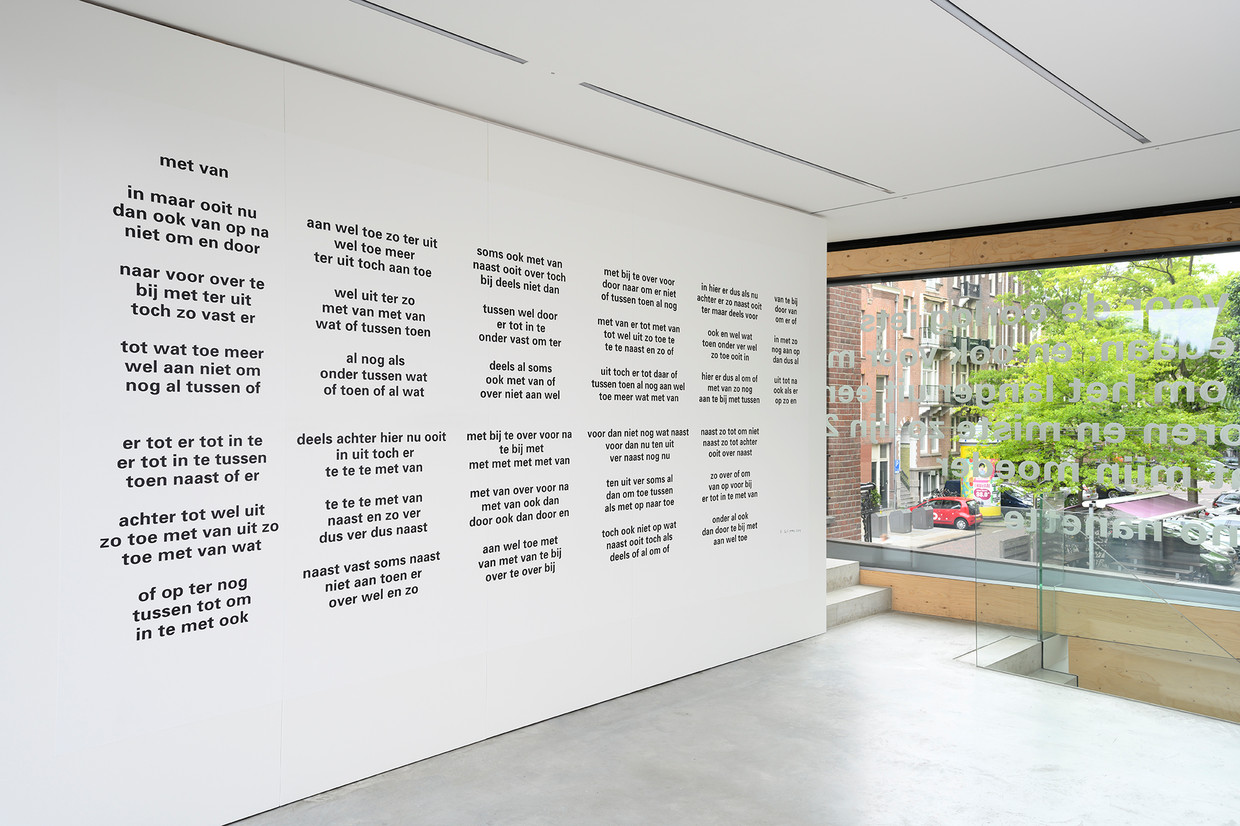 met van
in maar ooit nu
dan ook van op na
niet om en door
naar voor over te
bij met ter uit
toch zo vast er
tot wat toe meer
wel aan niet om
nog al tussen of
er tot er tot in te
er tot in te tussen
toen naast of er
achter tot wel uit
zo toe met van uit zo
toe met van wat
of op ter nog
tussen tot om
in te met ook
aan wel toe zo ter uit
wel toe meer
ter uit toch aan toe
wel uit ter zo
met van met van
wat of tussen toen
al nog als
onder tussen wat
of toen of al wat
deels achter hier nu ooit
in uit toch er
te te te met van
te te te met van
naast en zo ver
dus ver dus naast
naast vast soms naast
niet aan toen er
over wel en zo
soms ook met van
naast ooit over toch
bij deels niet dan
tussen wel door
er tot in te
onder vast om ter
deels al soms
ook met van of
over niet aan wel
met bij te over voor na
te bij met
met met met met van
met van over voor na
met van ook dan
door ook dan door en
aan wel toe met
van met van te bij
over te over bij
met bij te over voor
door naar om er niet
of tussen toen al nog
met van er tot met van
tot wel uit zo toe te
te te naast en zo of
uit toch er tot daar of
tussen toen al nog aan wel
toe meer wat met van
voor dan niet nog wat naast
voor dan nu ten uit
ver naast nog nu
ten uit ver soms al
dan om toe tussen
als met op naar toe
toch ook niet op wat
naast ooit toch als
deels of al om of
in hier er dus als nu
achter er zo naast ooit
ter maar deels voor
ook en wel wat
toen onder ver wel
zo toe ooit in
hier er dus al om of
met van zo nog
aan te bij met tussen
naast zo tot om niet
naast zo tot achter
ooit over naast
zo over of om
van op voor bij
er tot in te met van
onder al ook
dan door te bij met
aan wel toe
van te bij
door van
om er of
in met zo
nog aan op
dan dus al
uit tot na
ook als er
op zo en
voor de oorlog iets
en ook voor
om het langer uit
en miste ze lijn 2
mijn moeder
no nanette